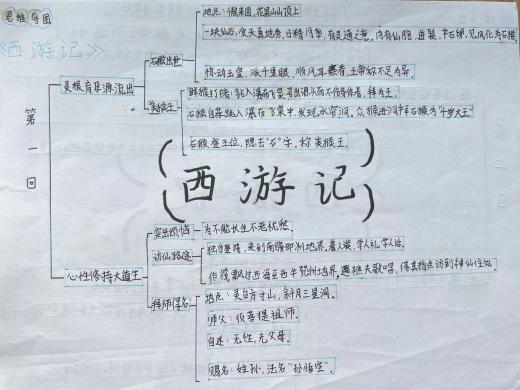 思维导图
《西游记》
第一回
灵根育孕源流出
石猴出世
地点：傲来国，花果山山顶上
一块仙石，受天真地秀、日精月华，有灵通之意。内有仙胎，迸裂，产石卵，见风化为石猴
惊动玉皇，派千里眼、顺风耳察看，玉帝称不足为异。
美猴王
群猴打赌：钻入瀑布飞泉寻出源头而不伤身体者，拜为王。
石猴自荐跳入瀑布飞泉中，发现水帘洞。众猴进洞拜石猴为"千岁大王"
石猴登王位，隐去"石"字，称美猴王。
(西游记)
心性修持大道生
突出烦恼
为不能长生不老忧愁。
访仙路途
独自登筏，来到南赡部洲地界，着人装，学人礼，学人话。
作筏飘过西海至西牛贺洲地界，遇樵夫歌唱，得其指点访到神仙住处。
拜师得名
地点：灵台方寸山，斜月三星洞。
师父：须菩提祖师。
自述：无性，无父母。
赐名：姓孙，法名"孙悟空"